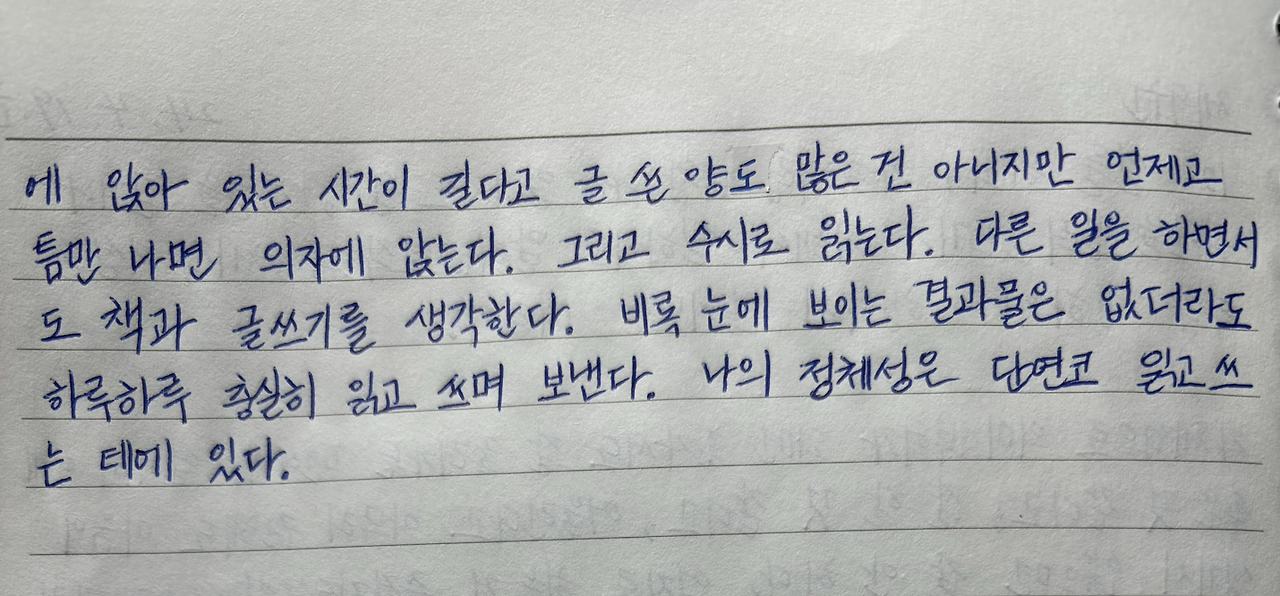 에 앉아 있는 시간이 길다고 글 쓴 양도 많은 건 아니지만 언제고
틈만 나면 의자에 앉는다. 그리고 수시로 읽는다. 다른 일을 하면서
도 책과 글쓰기를 생각한다. 비록 눈에 보이는 결과물은 없더라도
하루하루 충실히 읽고 쓰며 보낸다. 나의 정체성은 단연코 읽고 쓰
는 테에 있다.